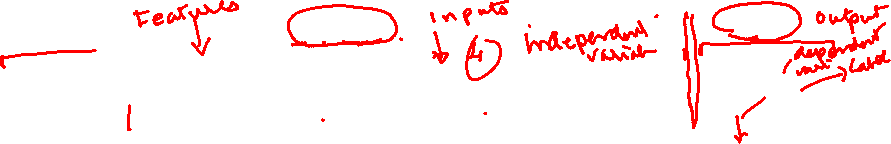 Features
inputs
independent
variab
output
dependent
vari
Label